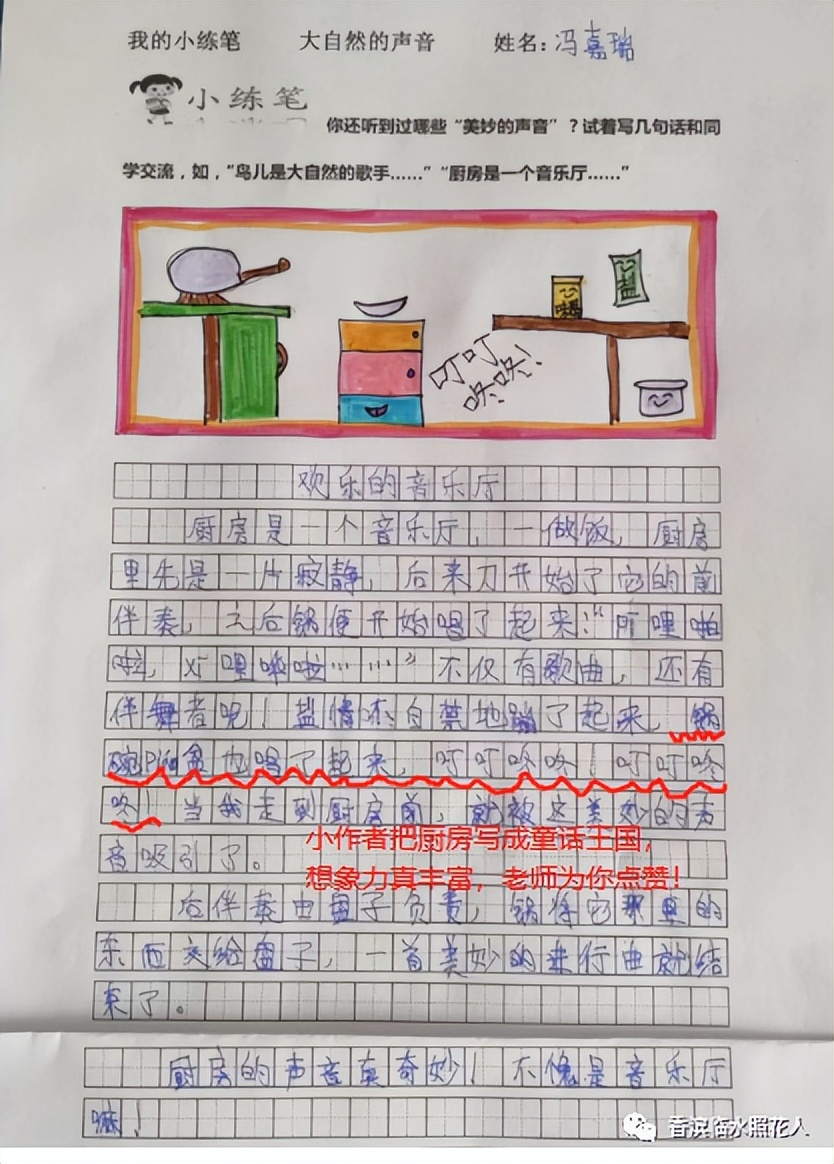 我的小练笔 大自然的声音 姓名：冯嘉瑞
小练笔
你还听到过哪些“美妙的声音”？试着写几句话和同
学交流，如，“鸟儿是大自然的歌手……”“厨房是一个音乐厅……”
盐
叮叮
咚咚！
欢乐的音乐厅
厨房是一个音乐厅，一做饭，厨房
里先是一片寂静，后来刀开始了它的前
伴奏，之后锅便开始唱了起来：“噼哩啪
啦，噼哩啪啦……”不仅有歌曲，还有
伴舞者呢！盐情不自禁地蹦了起来，锅
碗瓢盆也唱了起来，叮叮咚咚！叮叮咚
咚！当我走到厨房前，就被这美妙的声
音吸引了。
小作者把厨房写成童话王国，
想象力真丰富，老师为你点赞！
后伴奏由盘子负责，锅将它里的
东西交给盘子，一首美妙的进行曲就结
束了。
厨房的声音真奇妙！不愧是音乐厅
嘛！
香滨临水照花人